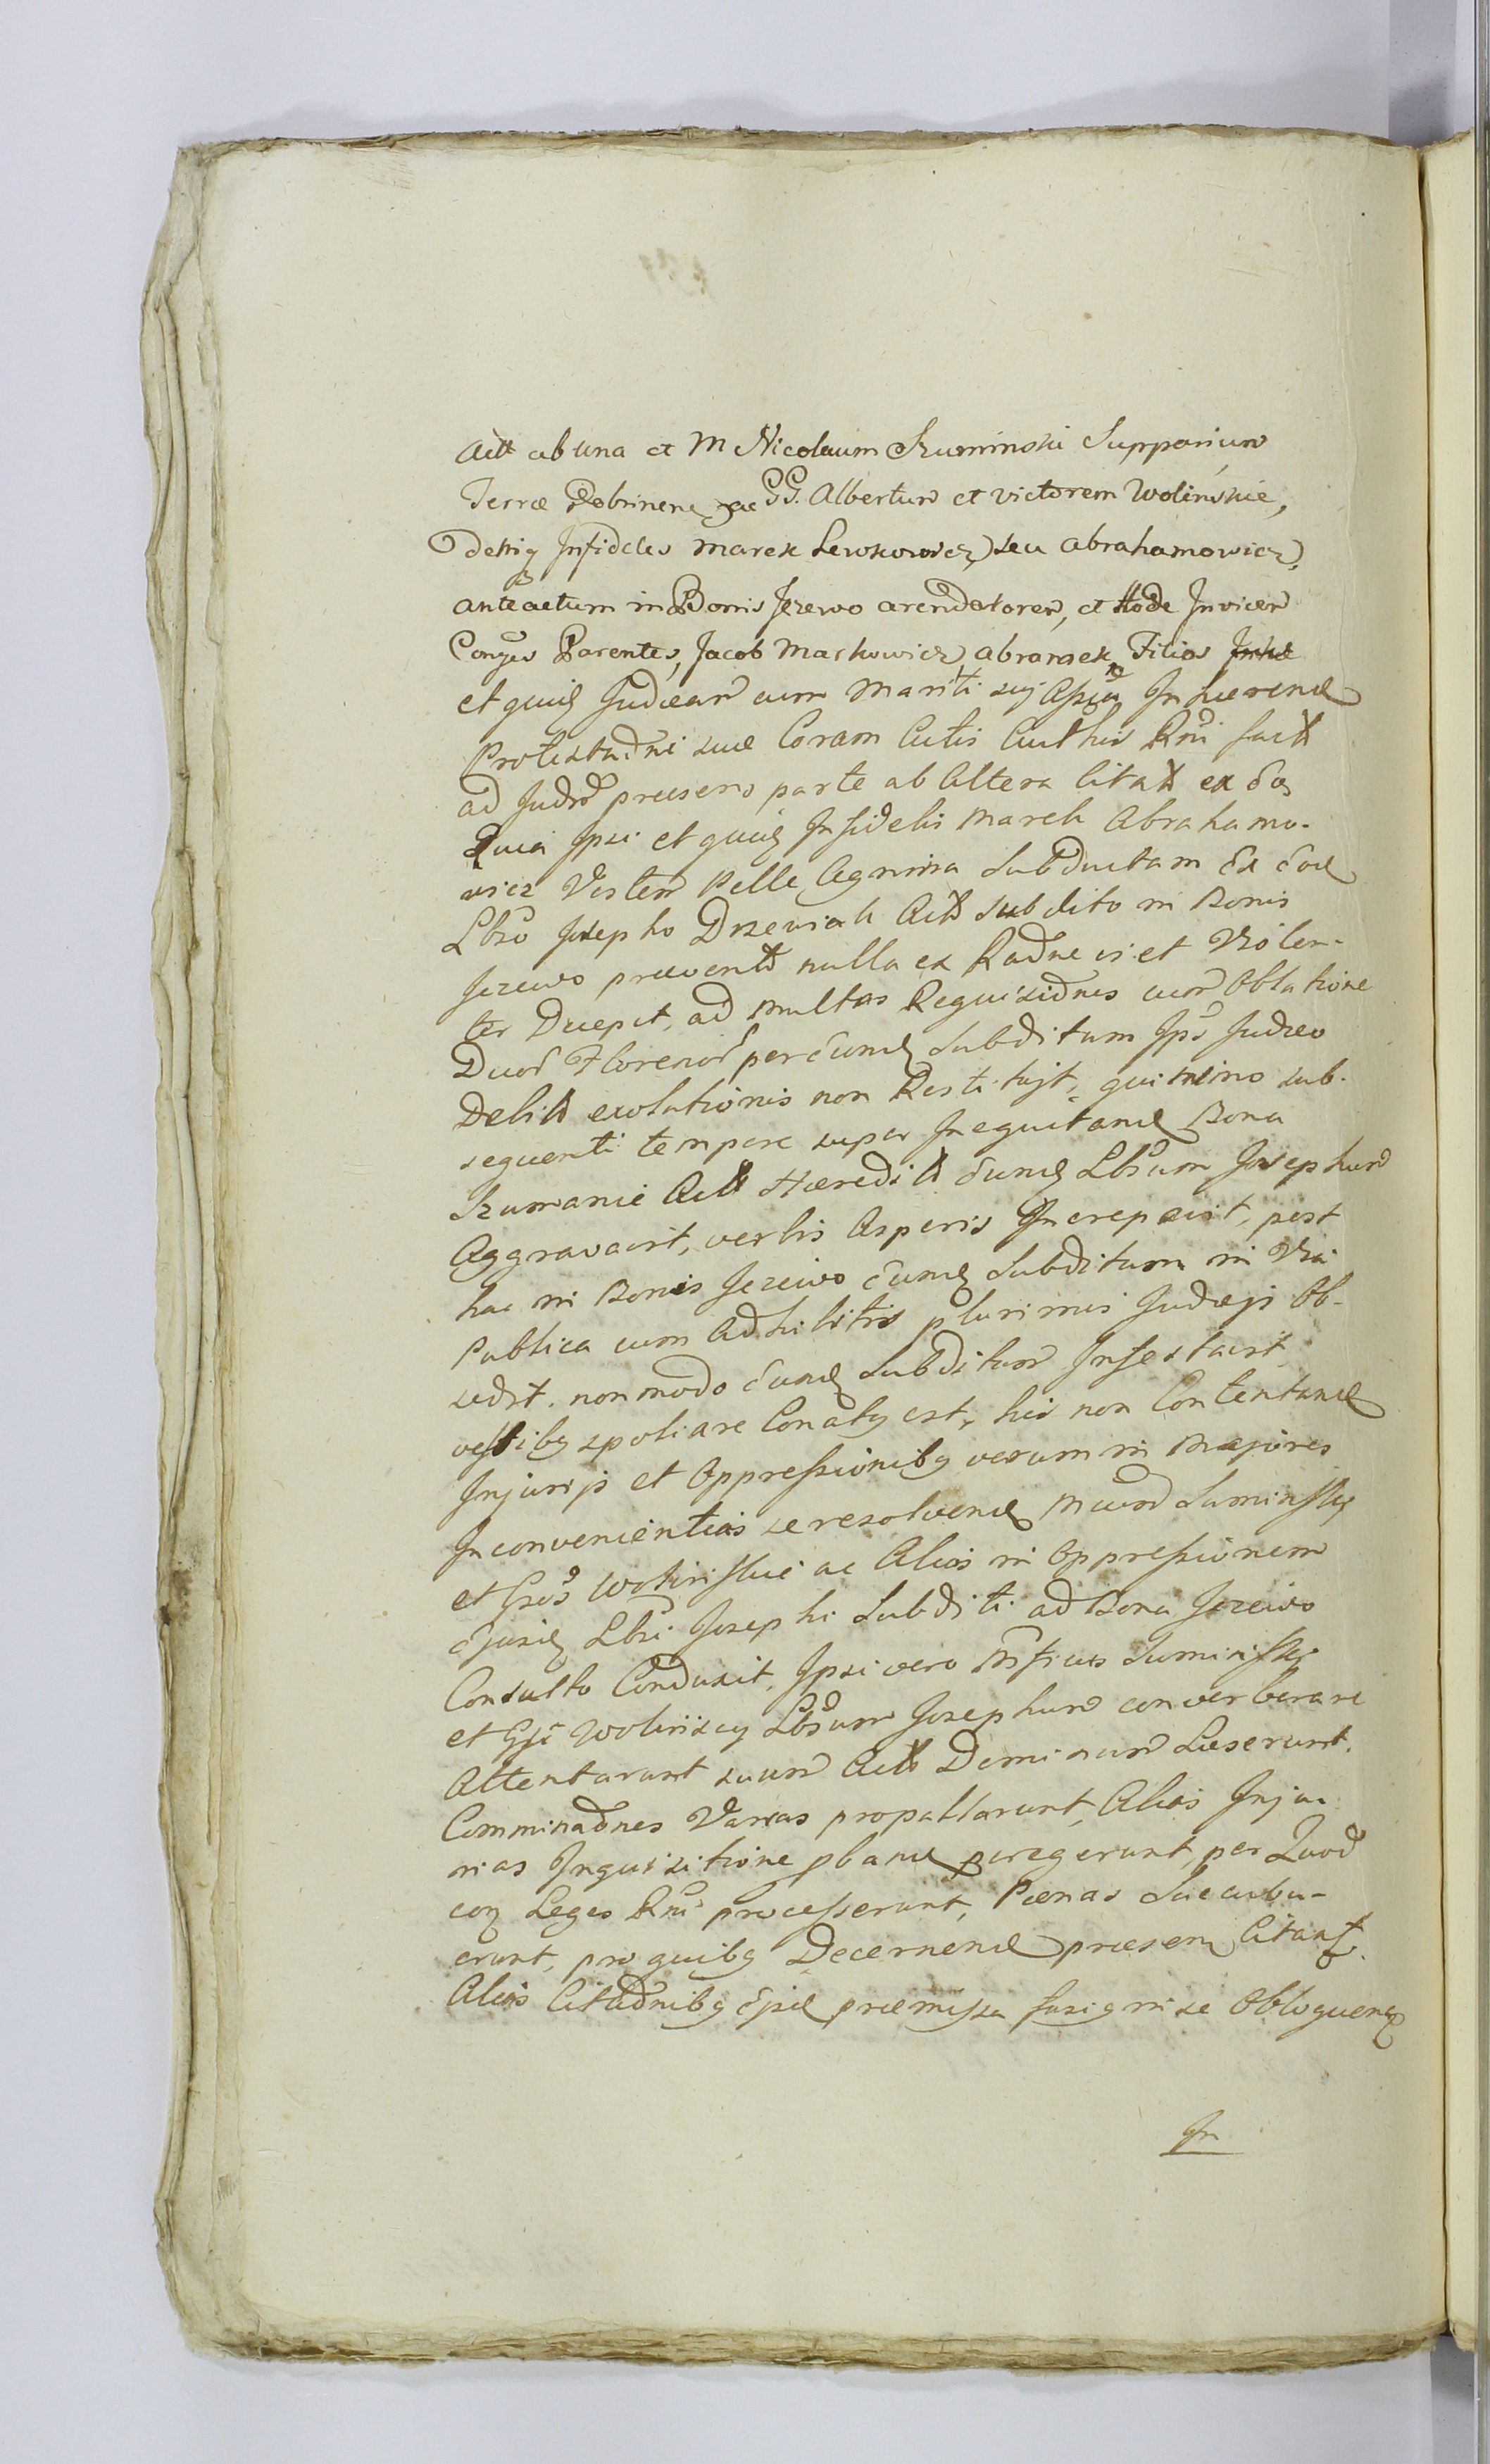 Actt ab una et M Nicolaum Suminski Supparium
Terræ Dobrinen ac GG. Albertum et Victorem Wolinskie,
Deniq Infideles Marek Lewkowicz seu Abrahamowicz,
anteactum in Bonis Jezewo arendatorem, et Hode Invicem
Conges Parentes, Jacob Markowicz Abramek Filios
et quius Judæam cum Mariti sui Assia Inhæren
Protestaoni suæ Coram Actis Authis Rni fact
ad Judm præsens parte ab Altera Citatt ex eo
Quia Ipsi et quius Infidelis Marek Abrahamo-
wicz Vestem Pelle Agnina Subductam Ex eod
Lbso Josepho Drzewiak Actt Subdito in Bonis
Jezewo prævent nulla ex Raone vi et Violen-
ter Decepit, ad multas Requisiones cum Oblatione
Duor Florenor per eund Subditum Ips Judæo
Debitt exolutionis non Restitujt, quinimo sub-
sequenti tempore super Inequitan Bona
Szumanie Actt Hæreditt eund Lbsum Josephum
Aggravavit, verbis Asperis Increpavit, post
hac in Bonis Jezewo eund Subditum in Via
Publica cum Adhibitis plurimis Judæis Ob-
sedit. non modo eund Subditum Infestavit
vestibq spoliare Conatq est, his non Contentand
Injurijs et Oppressionibq verum in Majores
Inconvenientias se resolvend Mcum Suminski
et Gsos Wolinskie ac Alios in Oppressionem
Ejusd Lbsi Josephi Subditi ad Bona Jezewo
Consulto Conduxit, Ipsi vero Mficus Suminski
et Gsi Wolinscy Lbsum Josephum converberare
Attentarunt suum Actt Dominum Læserunt.
Comminaones Varias propallarunt, Alias Inju-
rias Inquisitione pband peregerunt, per Quod
con Leges Rni processerunt, Pænas Succubu-
erunt, pro quibq Decernend præsen Citant.
Alias Citaonibq Epsd præmissa fusiq in se Obloquend
In